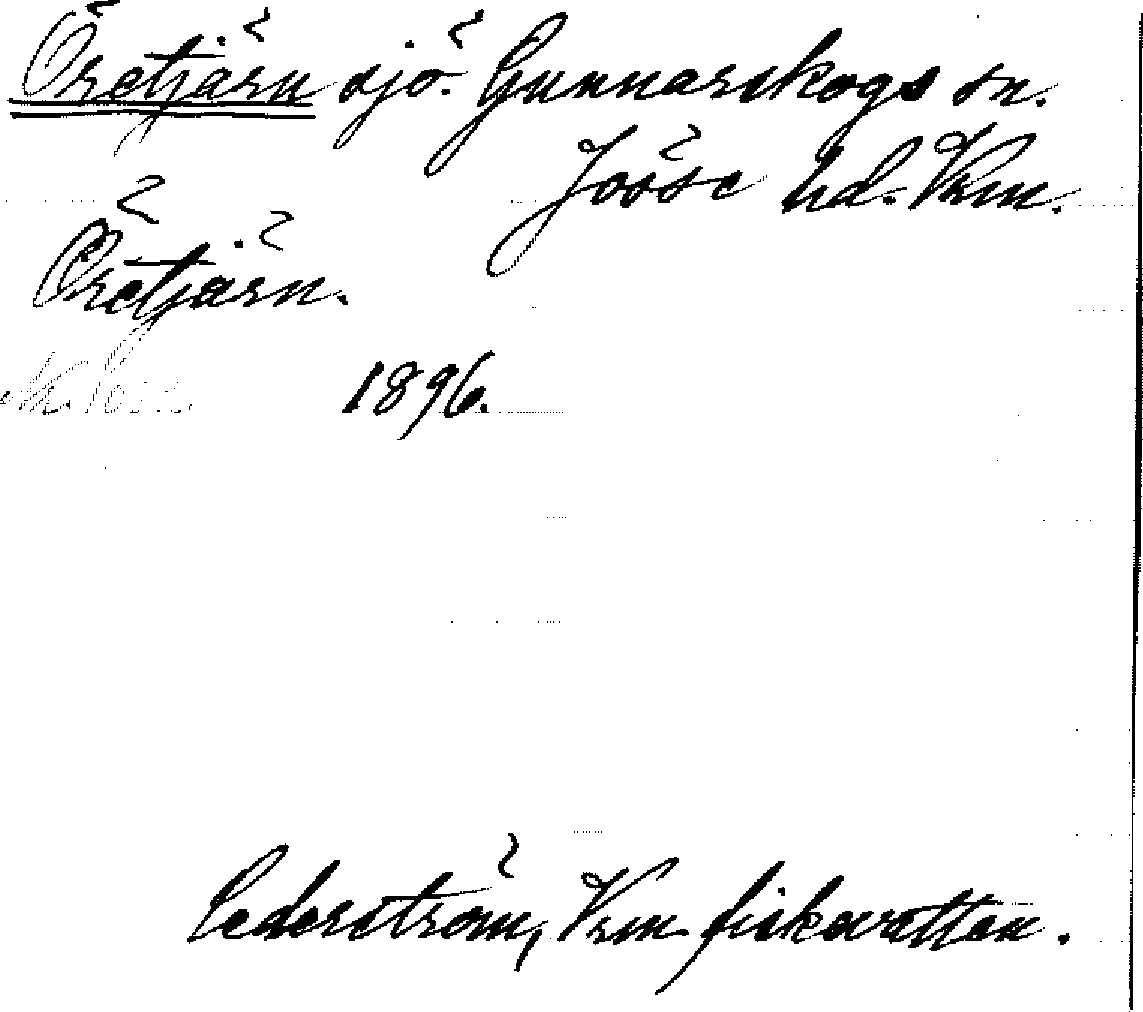 Öretjärn sjö. Gunnarskogs sn.
Jösse hd. Vrm.
Öretjärn.
1896.
Cederström, Vrm fiskevatten.